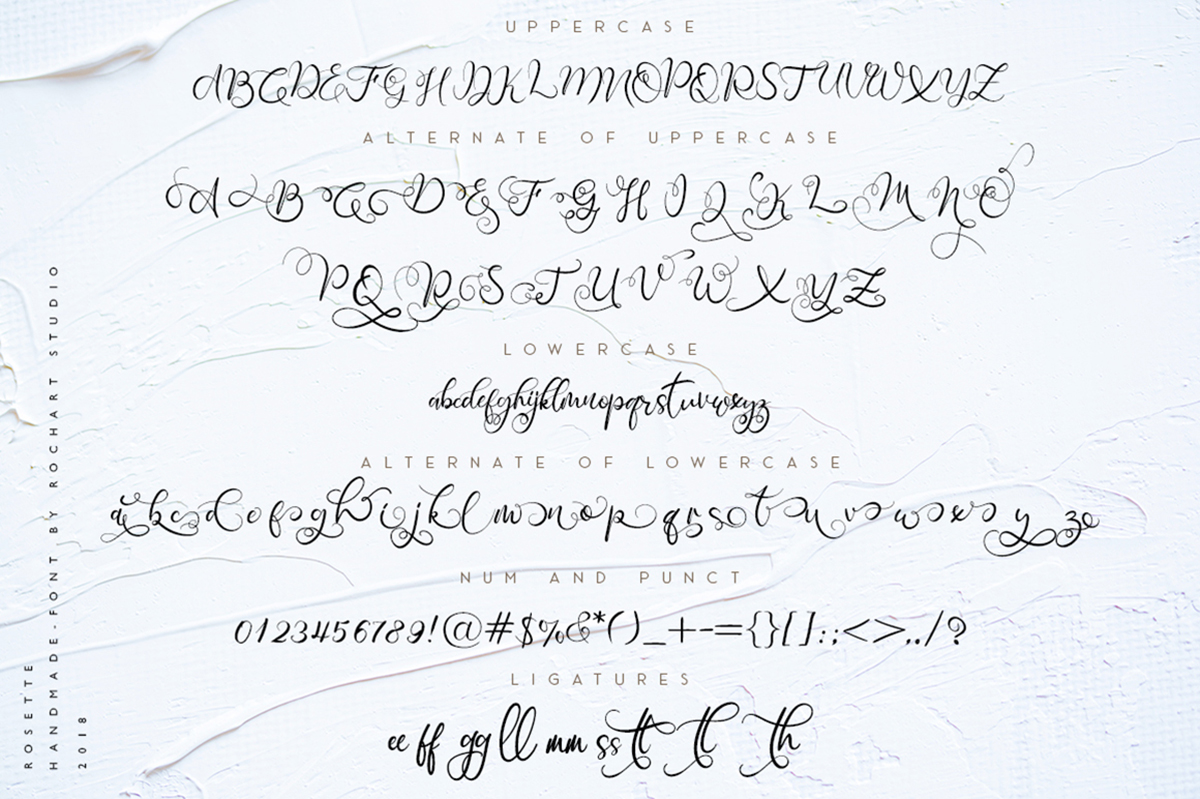 UPPERCASE
ABCDEFGHIJKLMNOPQRSTUVWXYZ
ALTERNATE OF UPPERCASE
A B C D E F G H I J K L M N O
P Q R S T U V W X Y Z
LOWERCASE
abcdefghijklmnopqrstuvwxyz
ALTERNATE OF LOWERCASE
a b c d e f g h i j k l m n o p q r s t u v w x y z
NUM AND PUNCT
0123456789!@#$%&*()_+-={}[]:;<>,./?
LIGATURES
ee ff gg ll mm ss tt tl th
ROSETTE
HANDMADE-FONT BY ROCHART STUDIO
2018